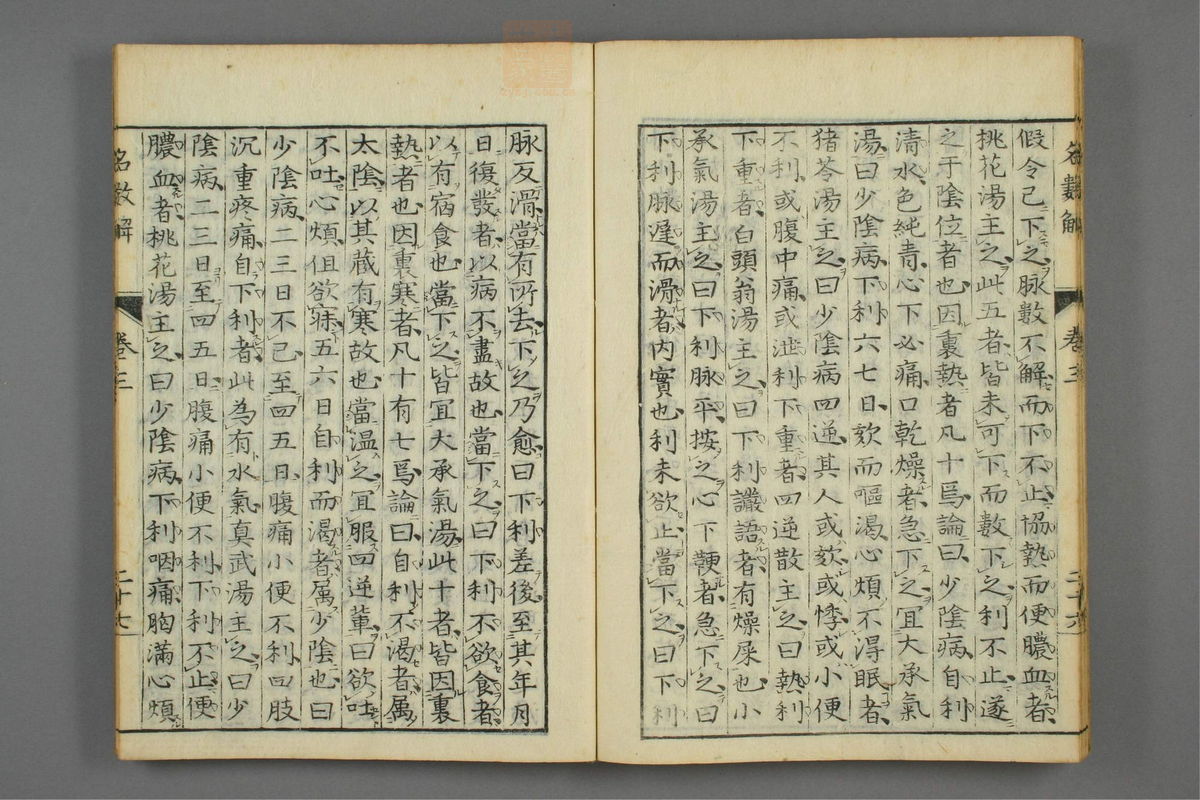 假令已下之脉數不解而下不止協熱而便膿血者
桃花湯主之此五者皆未可下而數下之利不止遂
之于陰位者也因裏熱者凡十焉論曰少陰病自利
清水色純青心下必痛口乾燥者急下之宜大承氣
湯曰少陰病下利六七日欬而嘔渴心煩不得眠者
猪苓湯主之曰少陰病四逆其人或欬或悸或小便
不利或腹中痛或泄利下重者四逆散主之曰熱利
下重者白頭翁湯主之曰下利讝語者有燥屎也小
承氣湯主之曰下利脉平按之心下鞕者急下之曰
下利脉遲而滑者内實也利未欲止當下之曰下利
名數解 卷三 二十六
脉反滑當有所去下之乃愈曰下利差後至其年月
日復發者以病不盡故也當下之曰下利不欲食者
以有宿食也當下之皆宜大承氣湯此十者皆因裏
熱者也因裏寒者凡十有七焉論曰自利不渴者属
太陰以其藏有寒故也當温之宜服四逆輩曰欲吐
不吐心煩但欲寐五六日自利而渴者属少陰也曰
少陰病二三日不已至四五日腹痛小便不利四肢
沉重疼痛自下利者此為有水氣真武湯主之曰少
陰病二三日至四五日腹痛小便不利下利不止便
膿血者桃花湯主之曰少陰病下利咽痛胸滿心煩
名數解 卷三 二十七